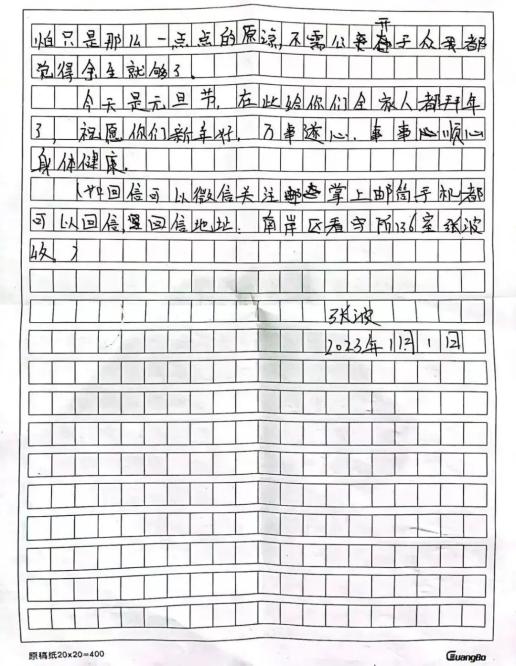 怕只是那么一点点的原谅,不需公开于众我都
觉得余生就够了.
今天是元旦节,在此给你们全家人都拜年
了,祝愿你们新年好,万事遂心,事事顺心
身体健康.
(如回信可以微信关注掌上邮筒手机都
可以回信,回信地址:南岸区看守所136室张波
收)
张波
2023年1月1日
原稿纸20×20=400
GuangBo